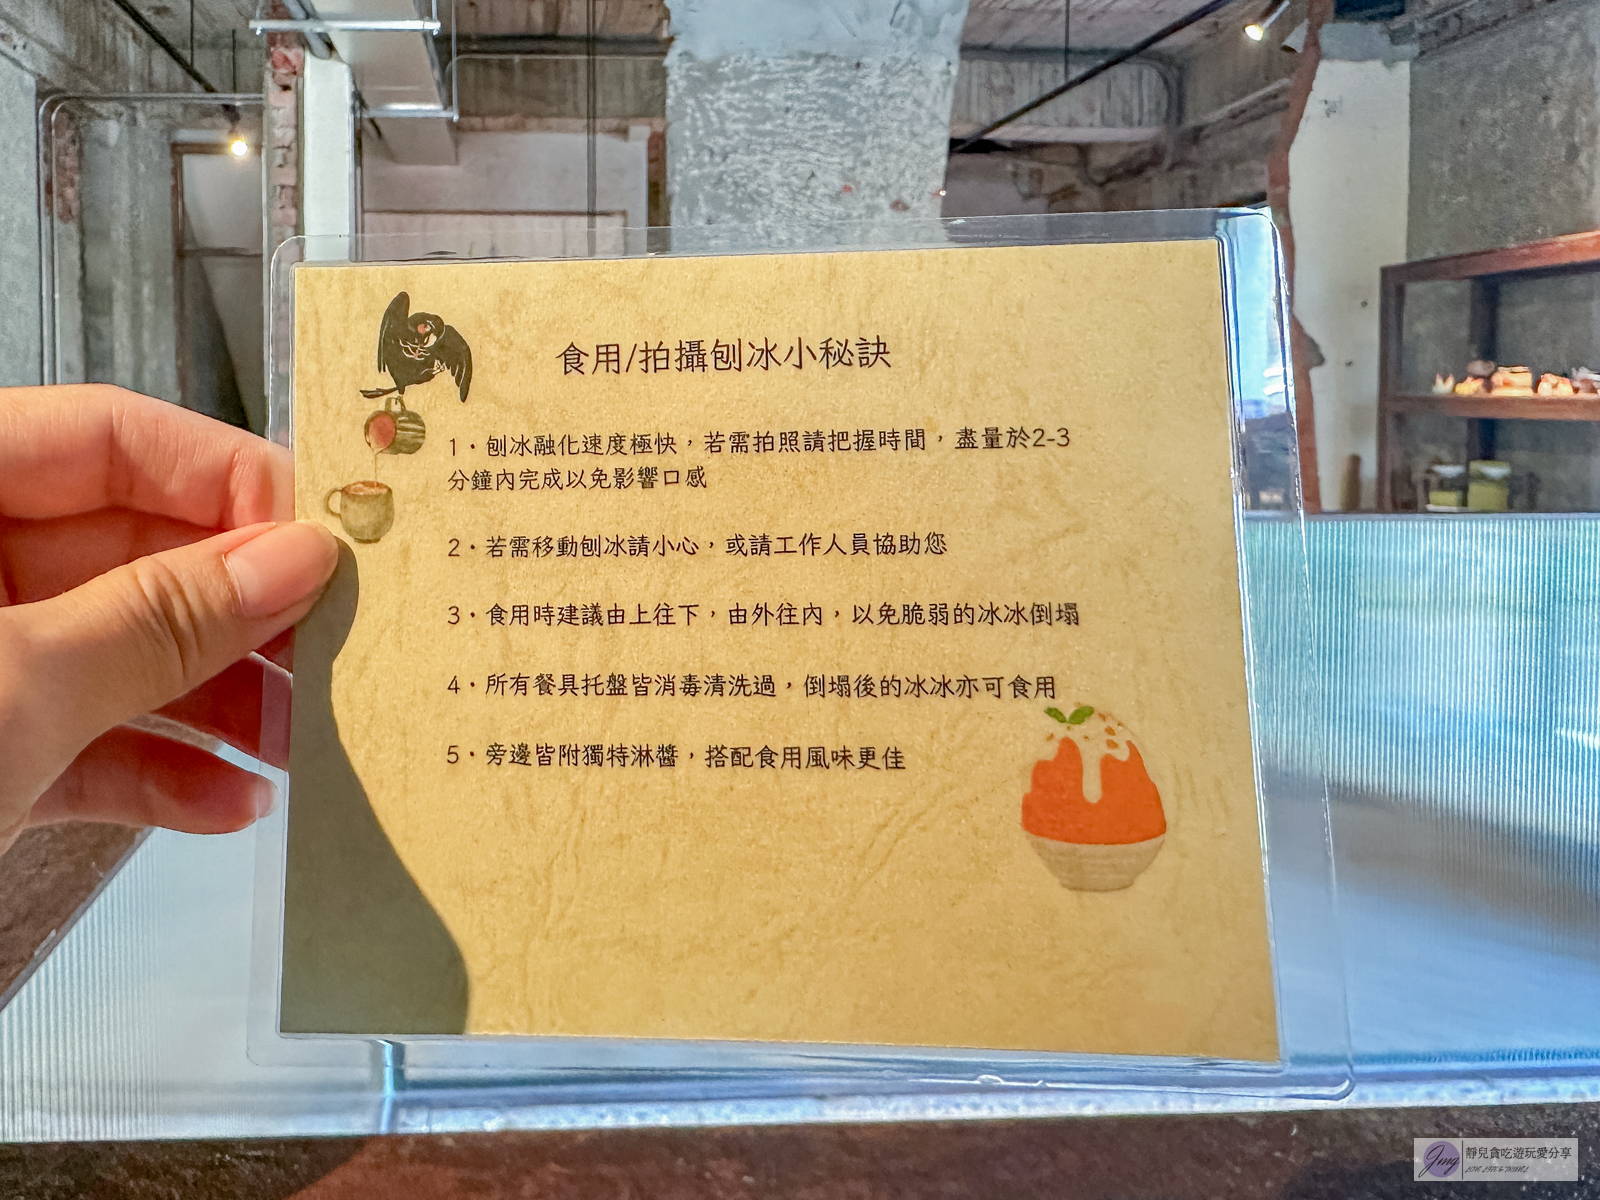 食用/拍攝刨冰小秘訣
1・刨冰融化速度極快，若需拍照請把握時間，盡量於2-3
分鐘內完成以免影響口感
2・若需移動刨冰請小心，或請工作人員協助您
3・食用時建議由上往下，由外往內，以免脆弱的冰冰倒塌
4・所有餐具托盤皆消毒清洗過，倒塌後的冰冰亦可食用
5・旁邊皆附獨特淋醬，搭配食用風味更佳
Jmg
靜兒貪吃遊玩愛分享